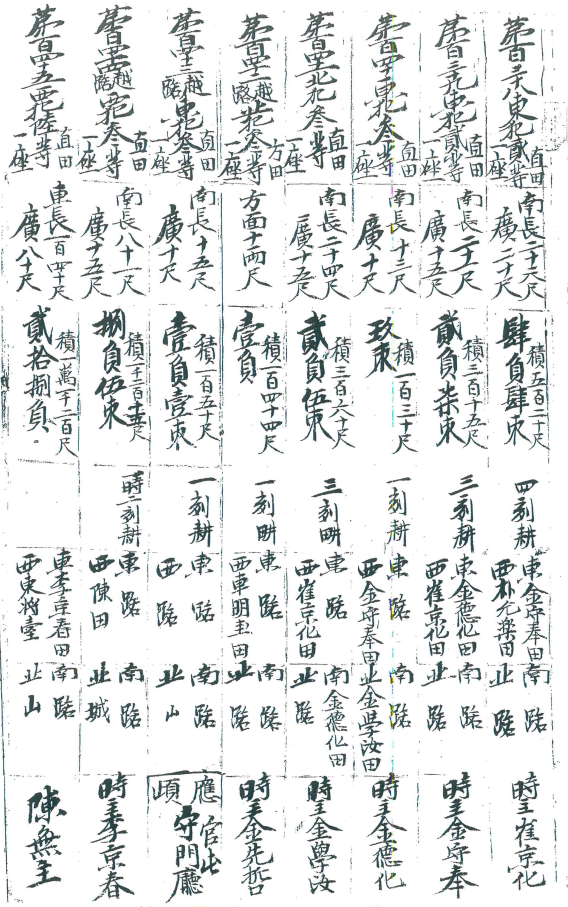 第百三十八東犯貳等 直田一座 南長二十六尺 廣二十尺 積五百二十尺 肆負肆束 四刻耕 東金守奉田 西朴允樂田 南路 北路 時主崔京化
第百三十九東犯貳等 直田一座 南長二十一尺 廣十五尺 積三百十五尺 貳負柒束 三刻耕 東金德化田 西崔京化田 南路 北路 時主金守奉
第百四十 犯叄等 直田一座 南長十三尺 廣十尺 積一百三十尺 玖束 一刻耕 東路 西金守奉田 南路 北金學汝田 時主金德化
第百四十一北犯叄等 直田一座 南長二十四尺 廣十五尺 積三百六十尺 貳負伍束 三刻畊 東路 西崔京化田 南金德化田 北路 時主金學汝
第百四十二越路北犯叄等 方田一座 方面十二尺 積一百四十四尺 壹負 一刻畊 東路 西車明圭田 南路 北路 時主金先哲
第百四十三越路 犯叄等 直田一座 南長十五尺 廣十尺 積一百五十尺 壹負壹束 一刻耕 東路 西路 南路 北山 應頉 守門廳
第百四十四越路 犯叄等 直田一座 南長八十一尺 廣十五尺 積一千二百十五尺 捌負伍束 時二刻耕 東路 西陳田 南路 北城 時主李京春
第百四十五 犯陸等 直田一座 東長一百四十尺 廣八十尺 積一萬一千二百尺 貳拾捌負 東李京春田 西東將臺 南路 北山 陳無主